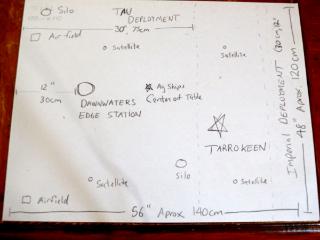 Silo
TAU
DEPLOYMENT
30", 75cm
Airfield
Satellite
Satellite
12"
30cm
DAWNWATERS
EDGE STATION
Ag Ships
Center of Table
TARROKEEN
Silo
Satellite
Satellite
Airfield
56" Aprox 140cm
Imperial DEPLOYMENT
48" Aprox. 120cm